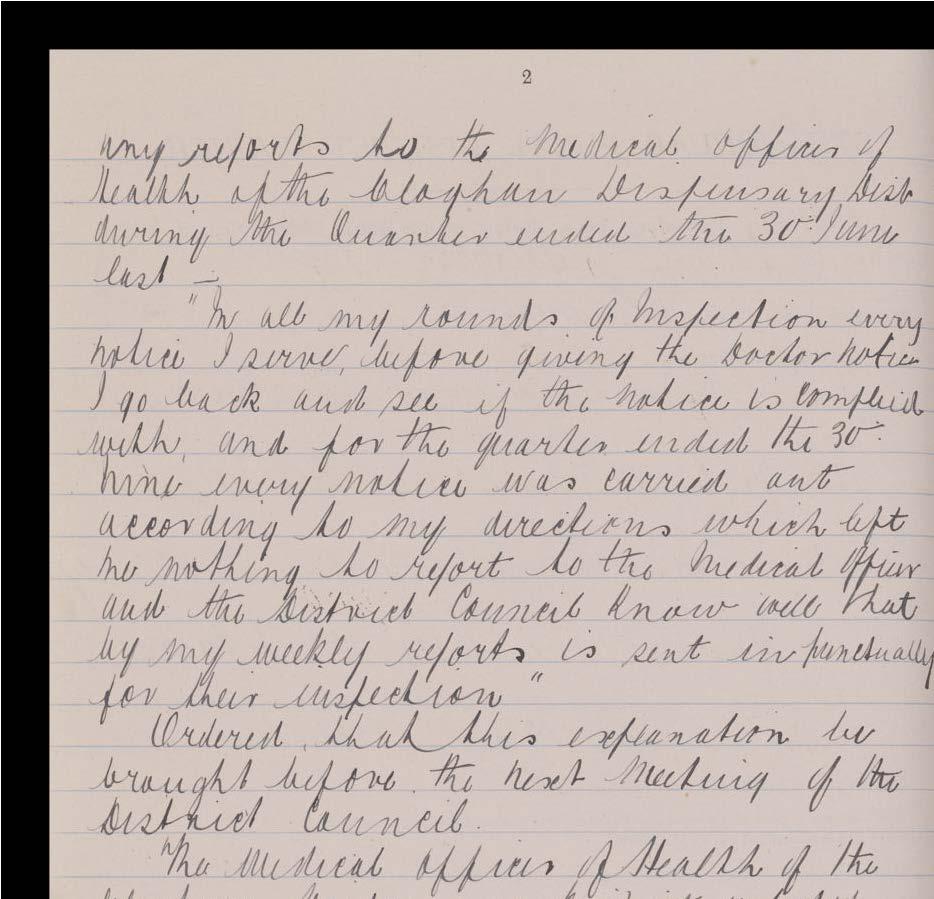 2
any reports to the Medical Officer of
Health of the Cloghan Dispensary Dist
during the Quarter ended the 30th June
last —
"In all my rounds of Inspection every
notice I serve, before giving the Doctor notice
I go back and see if the notice is complied
with, and for the quarter ended the 30th
nine every notice was carried out
according to my directions which left
me nothing to report to the Medical Officer
and the District Council know well that
by my weekly reports is sent in punctually
for their inspection"
Ordered, that this explanation be
brought before the next Meeting of the
District Council.
The Medical Officer of Health of the